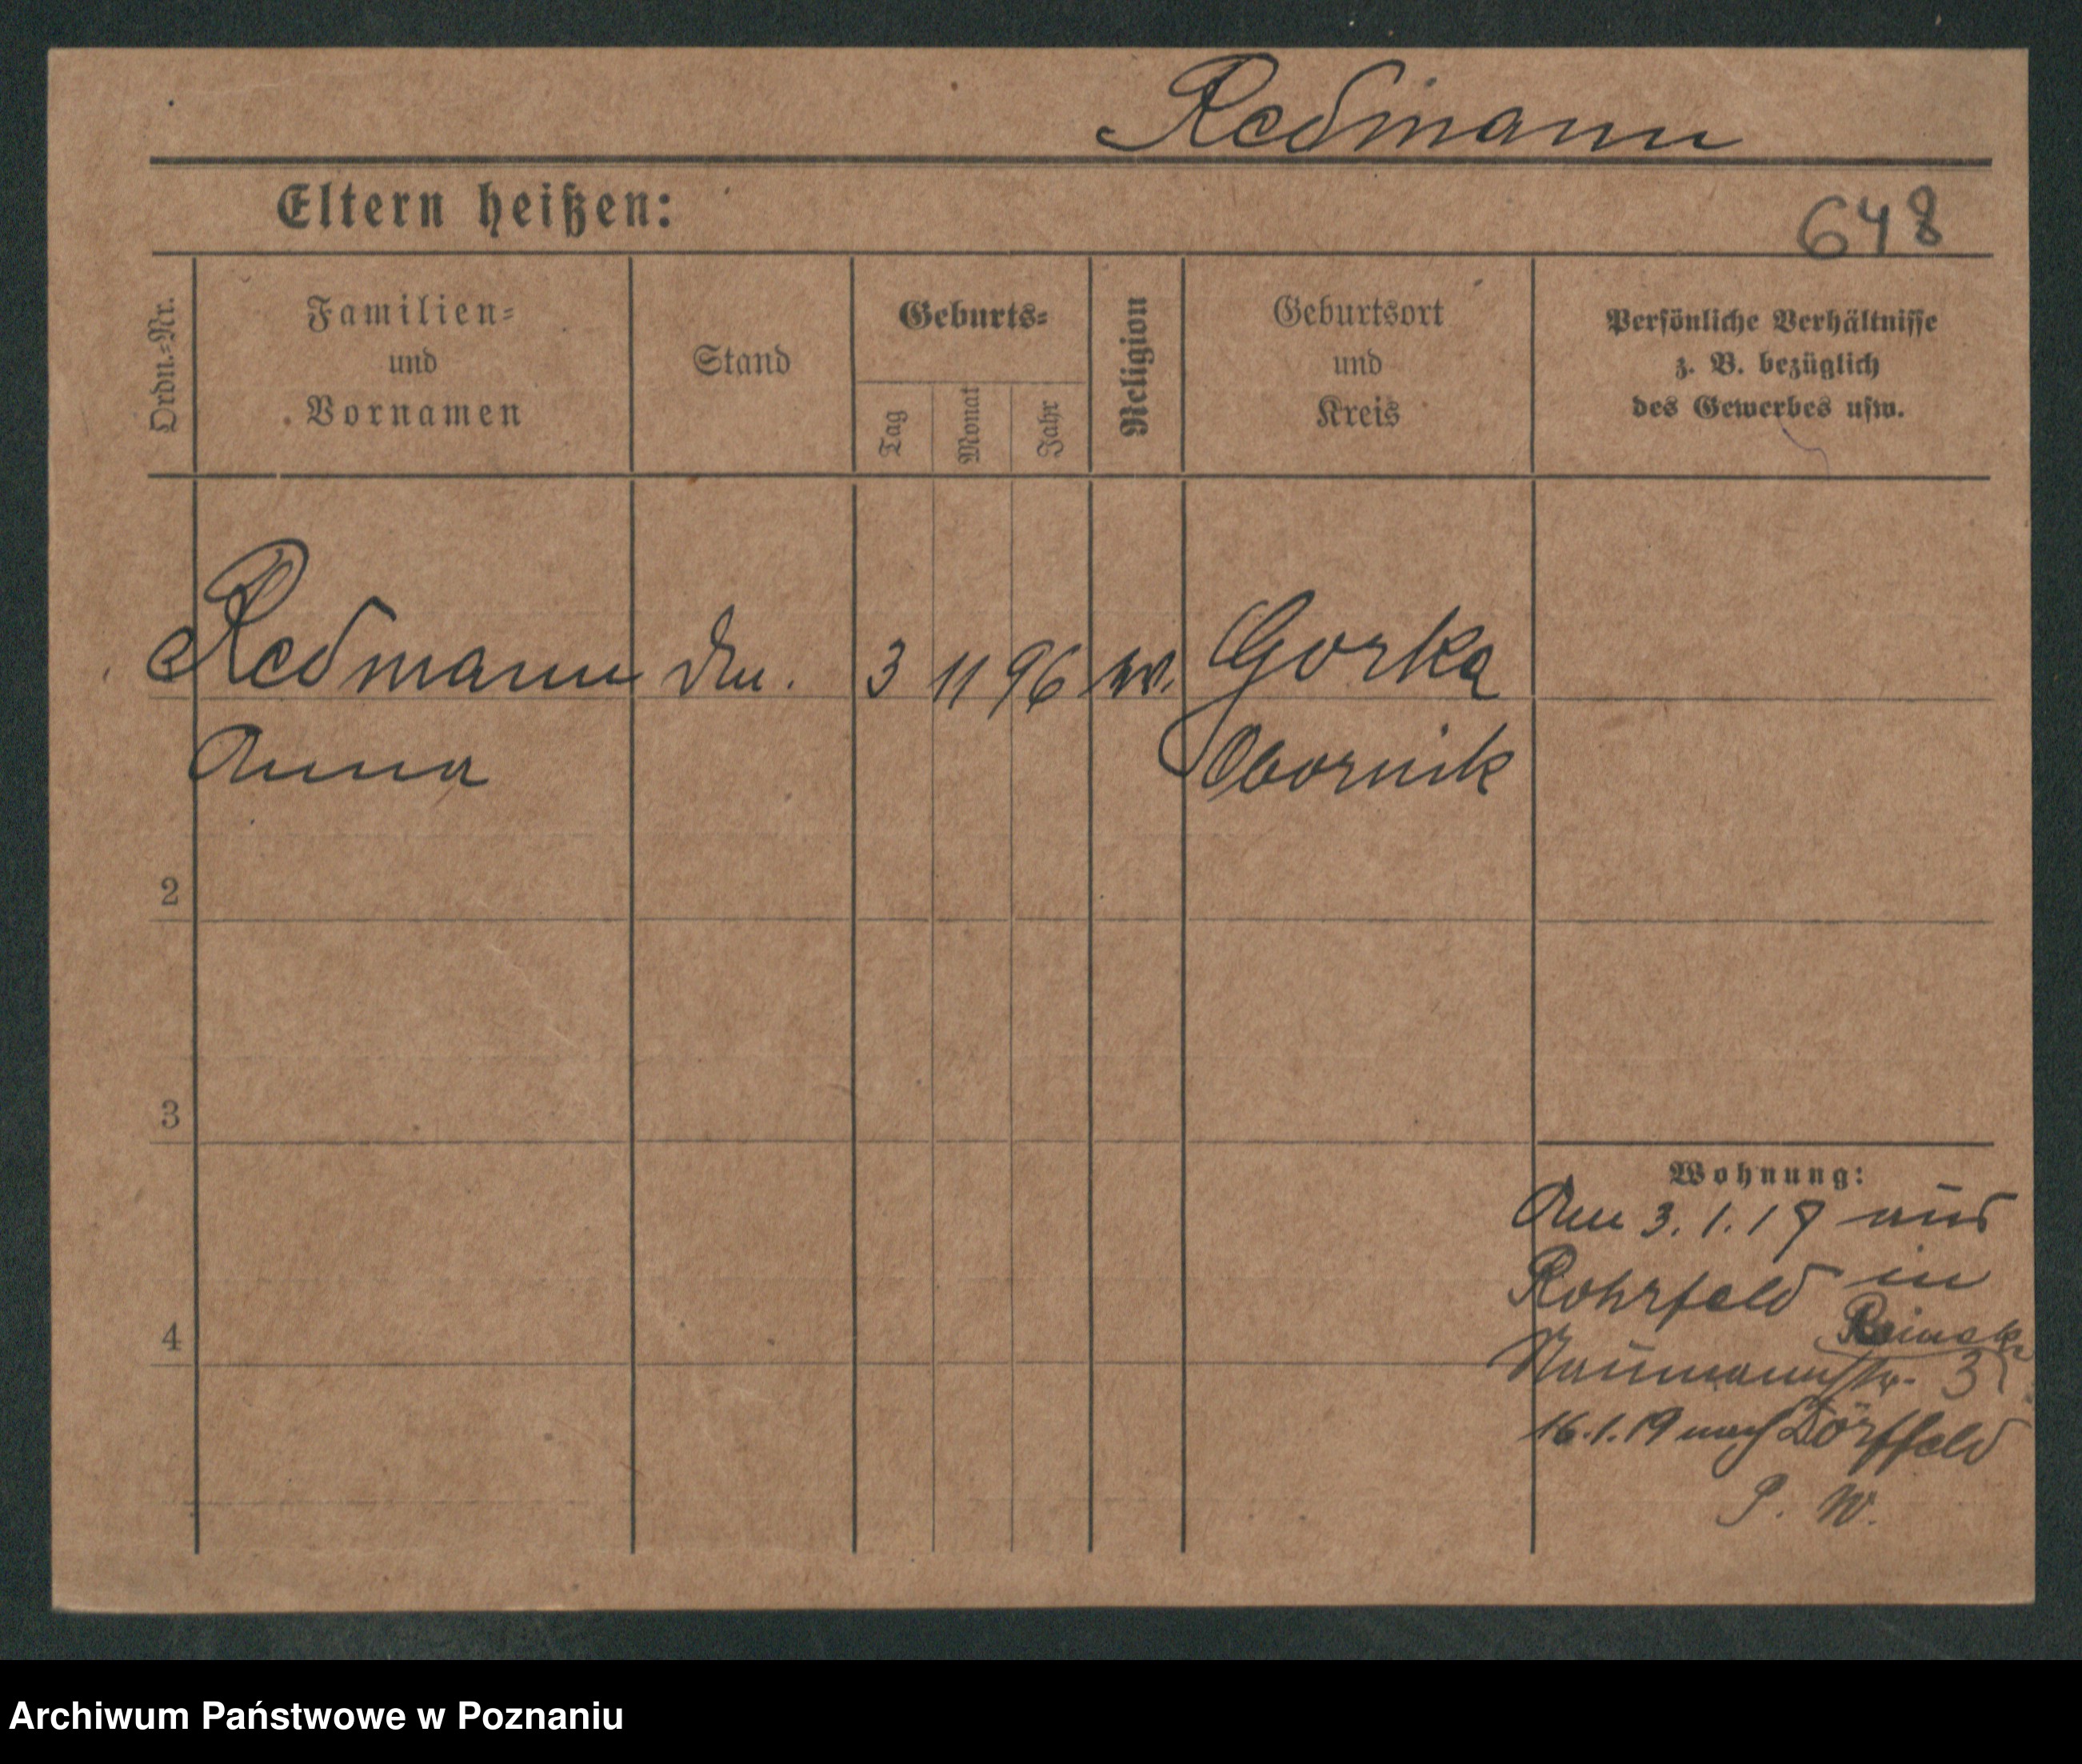 Redmann
Eltern heißen:
648
Ordn.-Nr.
Familien-
und
Vornamen
Stand
Geburts-
Tag
Monat
Jahr
Religion
Geburtsort
und
Kreis
Persönliche Verhältnisse
z. B. bezüglich
des Gewerbes usw.
Redmann
3 11 96
Gorka
Anna
Obornik
2
3
4
Wohnung:
Am 3. 1. 19 aus
Rohrfeld in
Naumannstr. 3
16.1.19 nach Dörffeld
P. W.
Archiwum Państwowe w Poznaniu